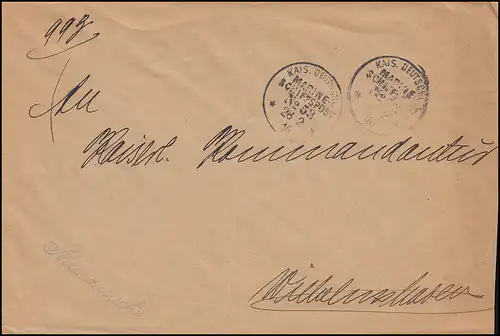 993
KAIS. DEUTSCHE
MARINE
SCHIFFSPOST
No 53
28 2
16
KAIS. DEUTSCHE
MARINE
An
Kaiserl. Kommandantur
Wilhelmshaven